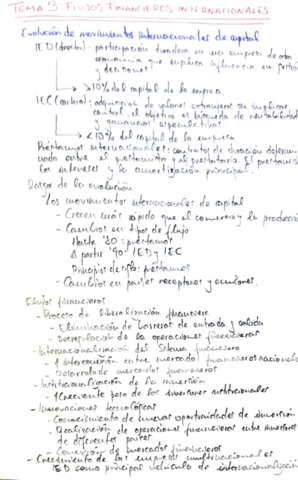 TEMA 3 FLUJOS FINANCIEROS INTERNACIONALES
Evolución de movimientos internacionales de capital
IED (directa): participación duradera en una empresa de otra
economía que implica influencia en gestión
y decisiones
>10% del capital de la empresa
IEC (cartera): adquisición de valores extranjeros sin implicar
control, el objetivo es búsqueda de rentabilidad
y ganancias especulativas
<10% del capital de la empresa
Préstamos internacionales: contratos de duración determi-
nada entre el prestamista y el prestatario. El prestamista
los intereses y la amortización principal.
de la evolución
Los movimientos internacionales de capital
- Crecen más rápido que el comercio y la producción
- Cambios en tipos de flujo
Hasta '80: préstamos
A partir '90: IED y IEC
Principios de siglo: préstamos
- Cambios en países receptores y emisores.
Flujos financieros
- Proceso de liberalización financiera
- Eliminación de barreras de entrada y salida
- Desregulación de la operaciones financieras
- Internacionalización del sistema financiero
- interconexión entre mercado financieros nacionales
- Desarrollo de mercados financieros
- Institucionalización de la inversión
- Creciente peso de los inversores institucionales
- Innovaciones tecnológicas
- Conocimiento de nuevas oportunidades de inversión
- Realización de operaciones financieros entre inversores
de diferentes países
- Conexión de mercados financieros
- Crecimiento de las empresas multinacionales
IED como principal vehículo de internacionalización